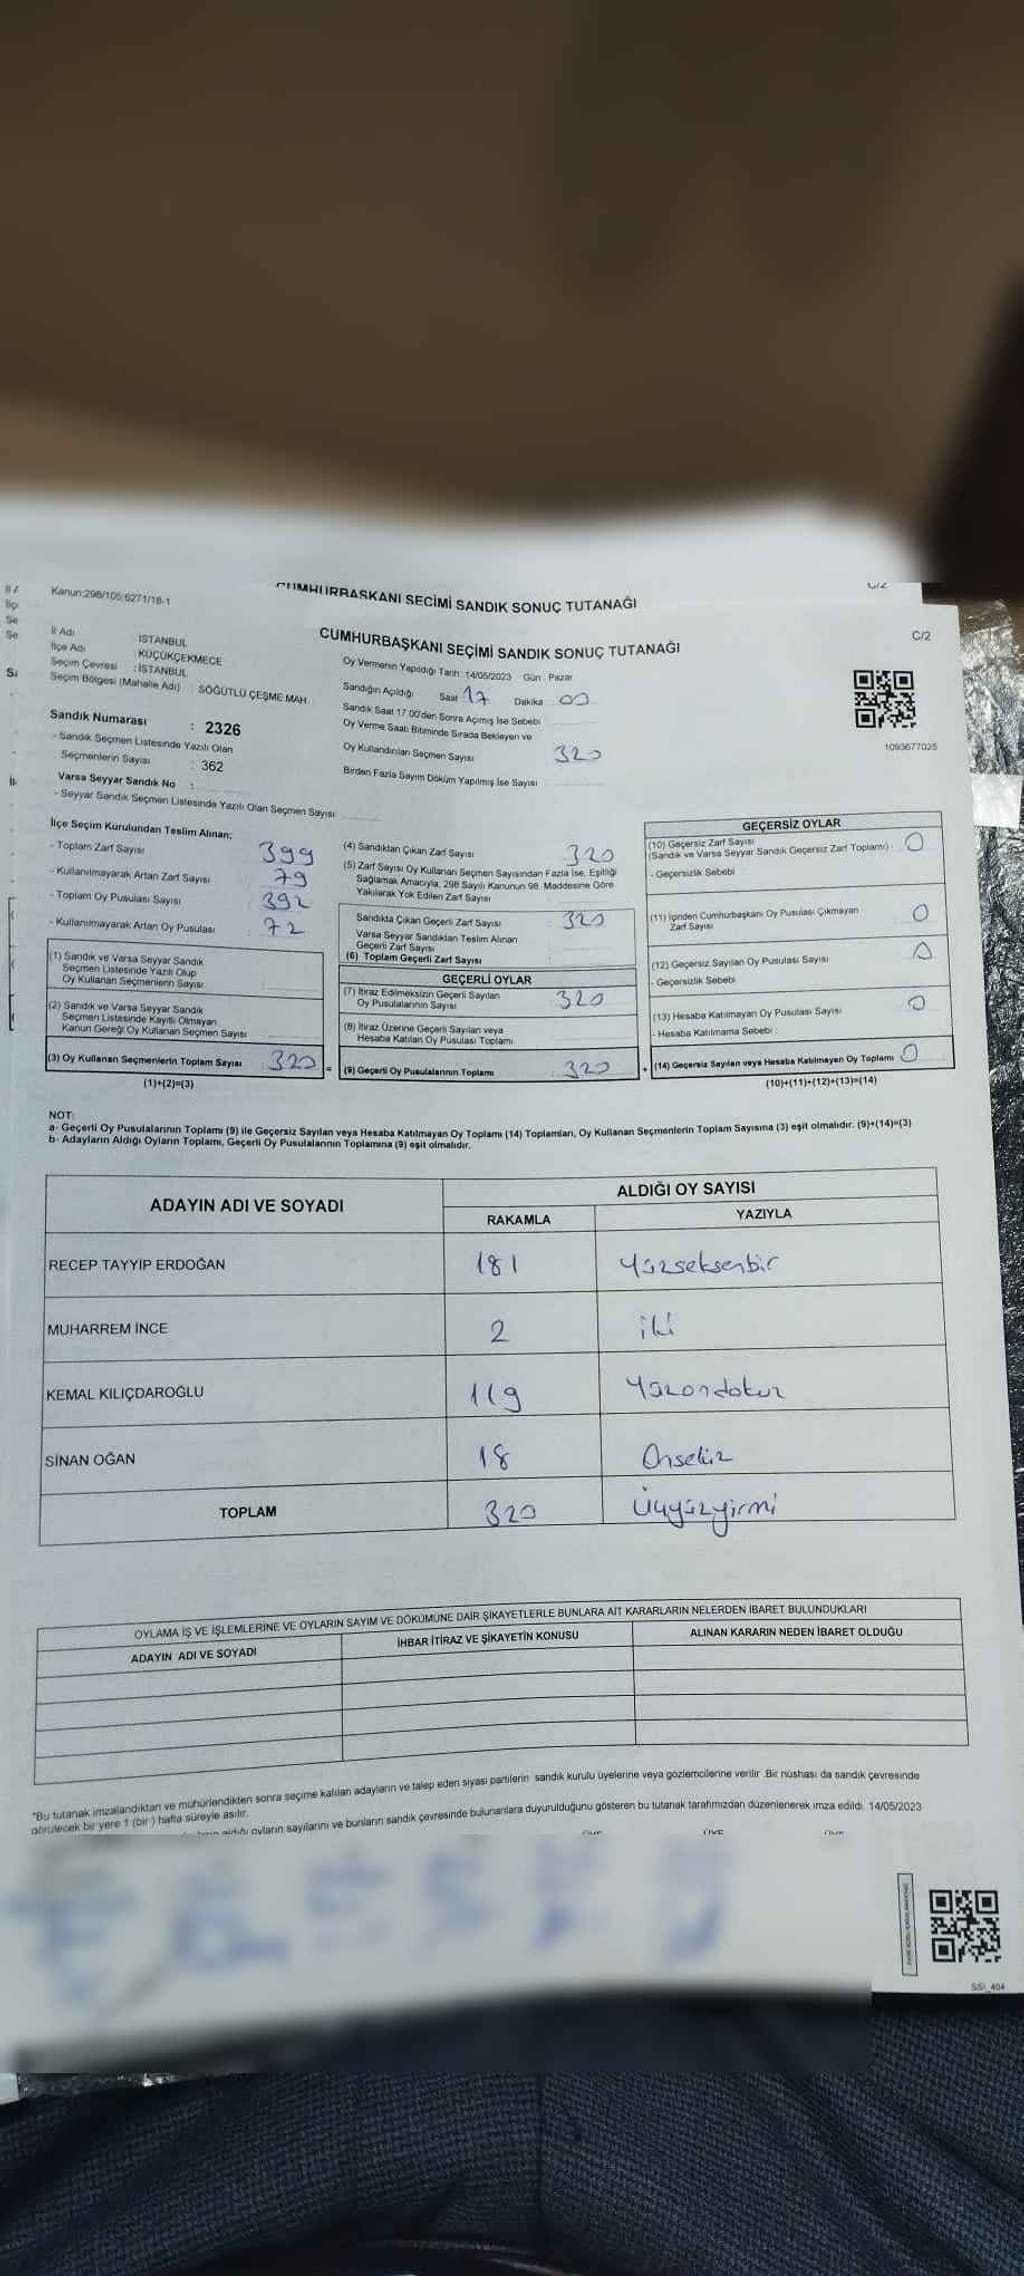 CUMHURBAŞKANI SEÇİMİ SANDIK SONUÇ TUTANAĞI
Kanun:298/105;6271/18-1
C/2
CUMHURBAŞKANI SEÇİMİ SANDIK SONUÇ TUTANAĞI
İl Adı : İSTANBUL
İlçe Adı : KÜÇÜKÇEKMECE
Seçim Çevresi : İSTANBUL
Seçim Bölgesi (Mahalle Adı) : SÖĞÜTLÜ ÇEŞME MAH.
Sandık Numarası : 2326
- Sandık Seçmen Listesinde Yazılı Olan
Seçmenlerin Sayısı : 362
Varsa Seyyar Sandık No :
- Seyyar Sandık Seçmen Listesinde Yazılı Olan Seçmen Sayısı
Oy Vermenin Yapıldığı Tarih :14/05/2023 Gün : Pazar
Sandığın Açıldığı Saat 17 Dakika 00
Sandık Saat 17.00'den Sonra Açımış İse Sebebi
Oy Verme Saati Bitiminde Sırada Bekleyen ve
Oy Kullandırılan Seçmen Sayısı 320
Birden Fazla Sayım Döküm Yapılmış İse Sayısı
1093677025
İlçe Seçim Kurulundan Teslim Alınan;
- Toplam Zarf Sayısı 399
- Kullanılmayarak Artan Zarf Sayısı 79
- Toplam Oy Pusulası Sayısı 392
- Kullanılmayarak Artan Oy Pusulası 72
(1) Sandık ve Varsa Seyyar Sandık
Seçmen Listesinde Yazılı Olup
Oy Kullanan Seçmenlerin Sayısı
(2) Sandık ve Varsa Seyyar Sandık
Seçmen Listesinde Kayıtlı Olmayan
Kanun Gereği Oy Kullanan Seçmen Sayısı
(3) Oy Kullanan Seçmenlerin Toplam Sayısı 320 =
(1)+(2)=(3)
(4) Sandıktan Çıkan Zarf Sayısı 320
(5) Zarf Sayısı Oy Kullanan Seçmen Sayısından Fazla İse, Eşitliği
Sağlamak Amacıyla, 298 Sayılı Kanunun 98. Maddesine Göre
Yakılarak Yok Edilen Zarf Sayısı
Sandıkta Çıkan Geçerli Zarf Sayısı 320
Varsa Seyyar Sandıktan Teslim Alınan
Geçerli Zarf Sayısı
(6) Toplam Geçerli Zarf Sayısı
GEÇERLİ OYLAR
(7) İtiraz Edilmeksizin Geçerli Sayılan
Oy Pusulalarının Sayısı 320
(8) İtiraz Üzerine Geçerli Sayılan veya
Hesaba Katılan Oy Pusulası Toplamı
(9) Geçerli Oy Pusulalarının Toplamı 320 +
GEÇERSİZ OYLAR
(10) Geçersiz Zarf Sayısı
(Sandık ve Varsa Seyyar Sandık Geçersiz Zarf Toplamı) : 0
- Geçersizlik Sebebi
(11) İçinden Cumhurbaşkanı Oy Pusulası Çıkmayan
Zarf Sayısı 0
(12) Geçersiz Sayılan Oy Pusulası Sayısı 0
- Geçersizlik Sebebi
(13) Hesaba Katılmayan Oy Pusulası Sayısı 0
- Hesaba Katılmama Sebebi
(14) Geçersiz Sayılan veya Hesaba Katılmayan Oy Toplamı 0
(10)+(11)+(12)+(13)=(14)
NOT:
a- Geçerli Oy Pusulalarının Toplamı (9) ile Geçersiz Sayılan veya Hesaba Katılmayan Oy Toplamı (14) Toplamları, Oy Kullanan Seçmenlerin Toplam Sayısına (3) eşit olmalıdır. (9)+(14)=(3)
b- Adayların Aldığı Oyların Toplamı, Geçerli Oy Pusulalarının Toplamına (9) eşit olmalıdır.
ADAYIN ADI VE SOYADI
ALDIĞI OY SAYISI
RAKAMLA YAZIYLA
RECEP TAYYİP ERDOĞAN 181 Yüzseksenbir
MUHARREM İNCE 2 iki
KEMAL KILIÇDAROĞLU 119 Yüzondokuz
SİNAN OĞAN 18 Onsekiz
TOPLAM 320 Üçyüzyirmi
OYLAMA İŞ VE İŞLEMLERİNE VE OYLARIN SAYIM VE DÖKÜMÜNE DAİR ŞİKAYETLERLE BUNLARA AİT KARARLARIN NELERDEN İBARET BULUNDUKLARI
ADAYIN ADI VE SOYADI İHBAR İTİRAZ VE ŞİKAYETİN KONUSU ALINAN KARARIN NEDEN İBARET OLDUĞU
*Bu tutanak imzalandıktan ve mühürlendikten sonra seçime katılan adayların ve talep eden siyasi partilerin sandık kurulu üyelerine veya gözlemcilerine verilir .Bir nüshası da sandık çevresinde
görülecek bir yere 1 (bir ) hafta süreyle asılır.
aldığı oyların sayılarını ve bunların sandık çevresinde bulunanlara duyurulduğunu gösteren bu tutanak tarafımızdan düzenlenerek imza edildi. 14/05/2023
ÜYE
SSİ_404